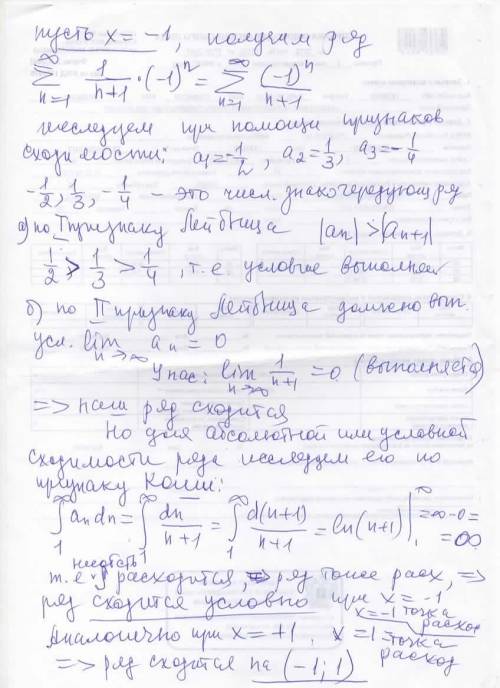 пусть x = -1, получим ряд
∞ ∑ n=1 1/(n+1) · (-1)^n = ∞ ∑ n=1 (-1)^n/(n+1)
исследуем при помощи признаков
сходимости; a₁ = -1/2, a₂ = 1/3, a₃ = -1/4
-1/2, 1/3, -1/4 - это числ. знакочередующ ряд
а) по I признаку Лейбница |an| > |an+1|
1/2 > 1/3 > 1/4, т.е условие выполнен
б) по II признаку Лейбница должно вып.
усл. lim n→∞ an = 0
У нас: lim n→∞ 1/(n+1) = 0 (выполняется)
=> наш ряд сходится
Но для абсолютной или условной
сходимости ряда исследуем его по
признаку Коши:
∫₁^∞ an dn = ∫₁^∞ dn/(n+1) = ∫₁^∞ d(n+1)/(n+1) = ln(n+1) |₁^∞ = ∞ - 0 = = ∞
т.е несобств ∫ расходится, => ряд тоже расх, =>
ряд сходится условно при x = -1
x = -1 точка расход
Аналогично при x = +1, x = 1 точка расход
=> ряд сходится на (-1; 1)